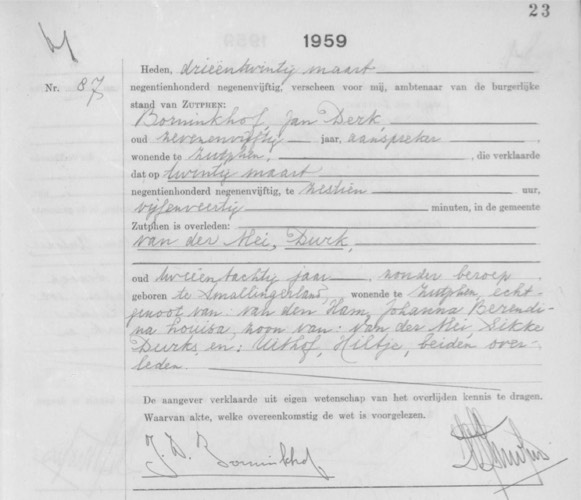 23
1959
Heden, drieëntwintig maart
Nr. 87
negentienhonderd negenenvijftig, verscheen voor mij, ambtenaar van de burgerlijke
stand van ZUTPHEN:
Bormınkhof, Jan Derk
oud zevenenvijftig jaar, aanspreker
wonende te Zutphen, , die verklaarde
dat op twintig maart
negentienhonderd negenenvijftig, te zestien uur,
vijfenveertig minuten, in de gemeente
Zutphen is overleden:
van der Mei, Durk,
oud tweeëntachtig jaar, zonder beroep
geboren te Smallingerland, wonende te Zutphen, echt-
genoot van: van den Ham, Johanna Berendi-
na Louisa, zoon van: van der Mei, Sikke
Durks, en: Uithof, Hiltje, beiden over-
leden.
De aangever verklaarde uit eigen wetenschap van het overlijden kennis te dragen.
Waarvan akte, welke overeenkomstig de wet is voorgelezen.
J. D. Borminkhof